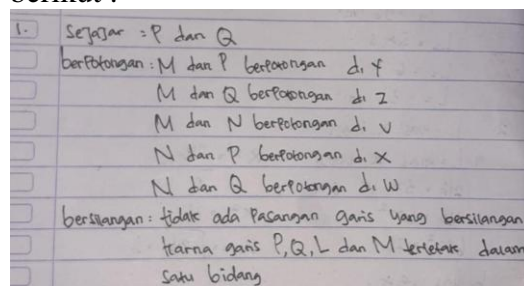 berikut :
1. Sejajar : P dan Q
berpotongan : M dan P berpotongan di Y
M dan Q berpotongan di Z
M dan N berpotongan di V
N dan P berpotongan di X
N dan Q berpotongan di W
bersilangan : tidak ada pasangan garis yang bersilangan
karna garis P, Q, L dan M terletak dalam
satu bidang